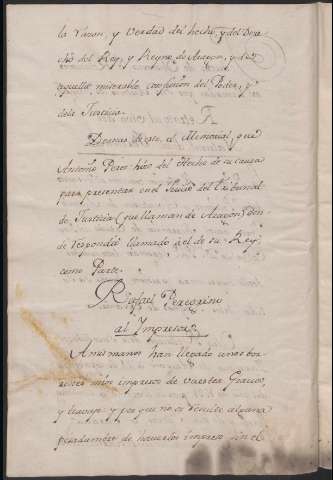 la razon, y Verdad del hecho, y del Dere
cho del Rey, y Reyno de Aragon, y de
aquella miserable confusion del Poder, y
dela Justicia.
Demas de esto, al Memorial, que
Antonio Perez hizo del Hecho de su causa
para presentar en el Juicio del Tribunal
de Justicia (que llaman de Aragon) don
de respondió llamado à el de su Rey
como Parte.
Rafael Peregrino
al Impresor
A mis manos han llegado unos bor
rones mios impresos de vuestra
y trabajo y por que no os resulte alguna
pesadumbre de haverlos impreso sin el